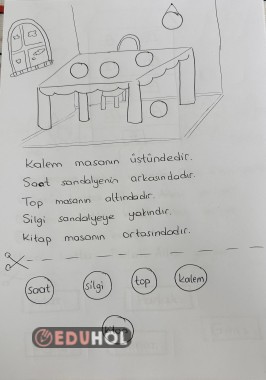 Kalem masanın üstündedir.
Saat sandalyenin arkasındadır.
Top masanın altındadır.
Silgi sandalyeye yakındır.
Kitap masanın ortasındadır.
saat silgi top kalem
EDUHOL